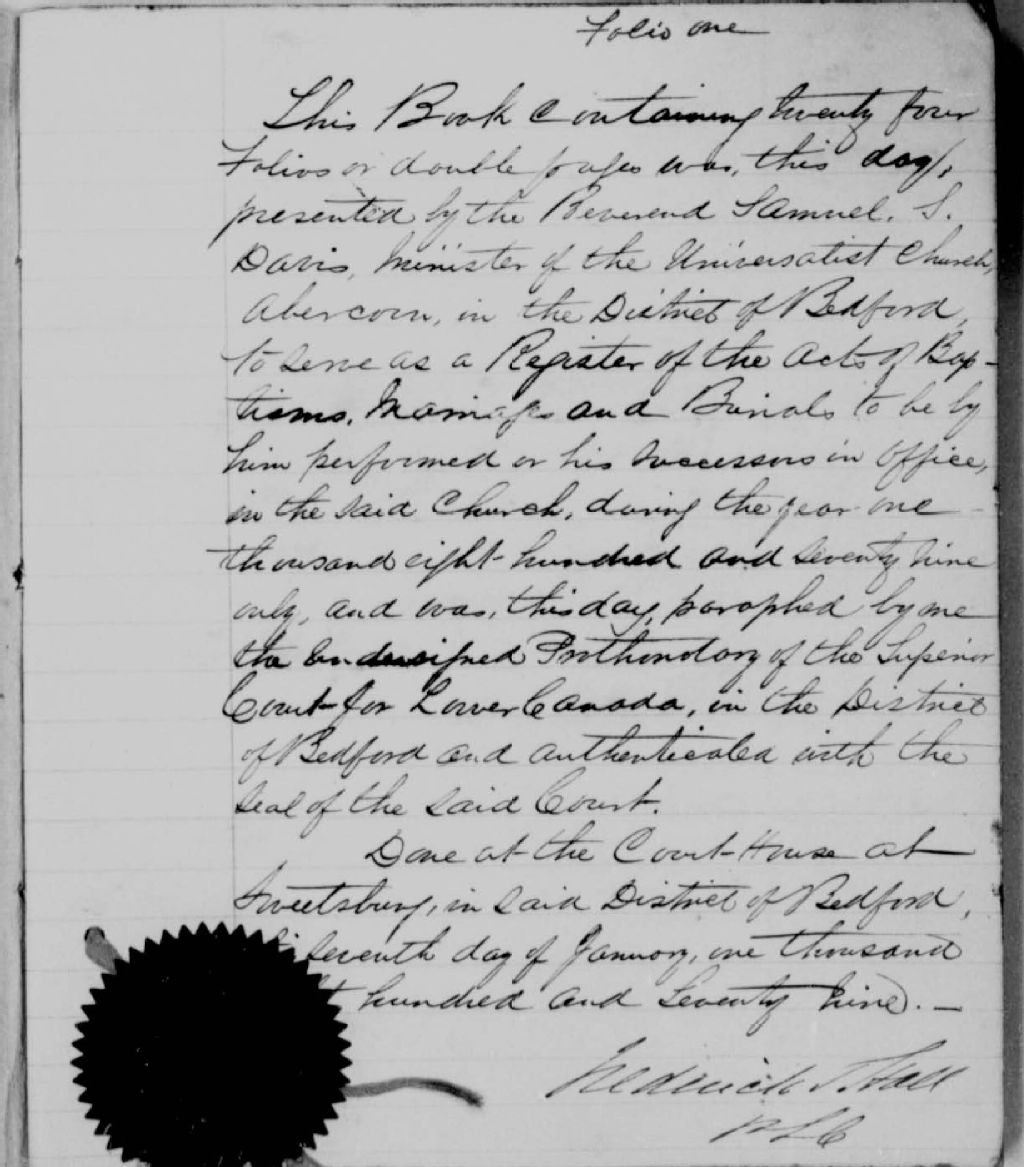 Folio one
This Book containing twenty four
Folios or double pages was, this day,
presented by the Reverend Samuel. S.
Davis, Minister of the Universalist Church,
Abercorn, in the District of Bedford,
to serve as a Register of the Acts of Bap-
tisms, Marriages and Burials to be by
him performed or his successors in office,
in the said Church, during the year one
thousand eight hundred and seventy nine
only, and was, this day, paraphed by me
the undersigned Prothonotary of the Superior
Court for Lower Canada, in the District
of Bedford and authenticated with the
seal of the said Court.
Done at the Court House at
Sweetsburg, in said District of Bedford,
seventh day of January, one thousand
hundred and seventy nine. —
P S C